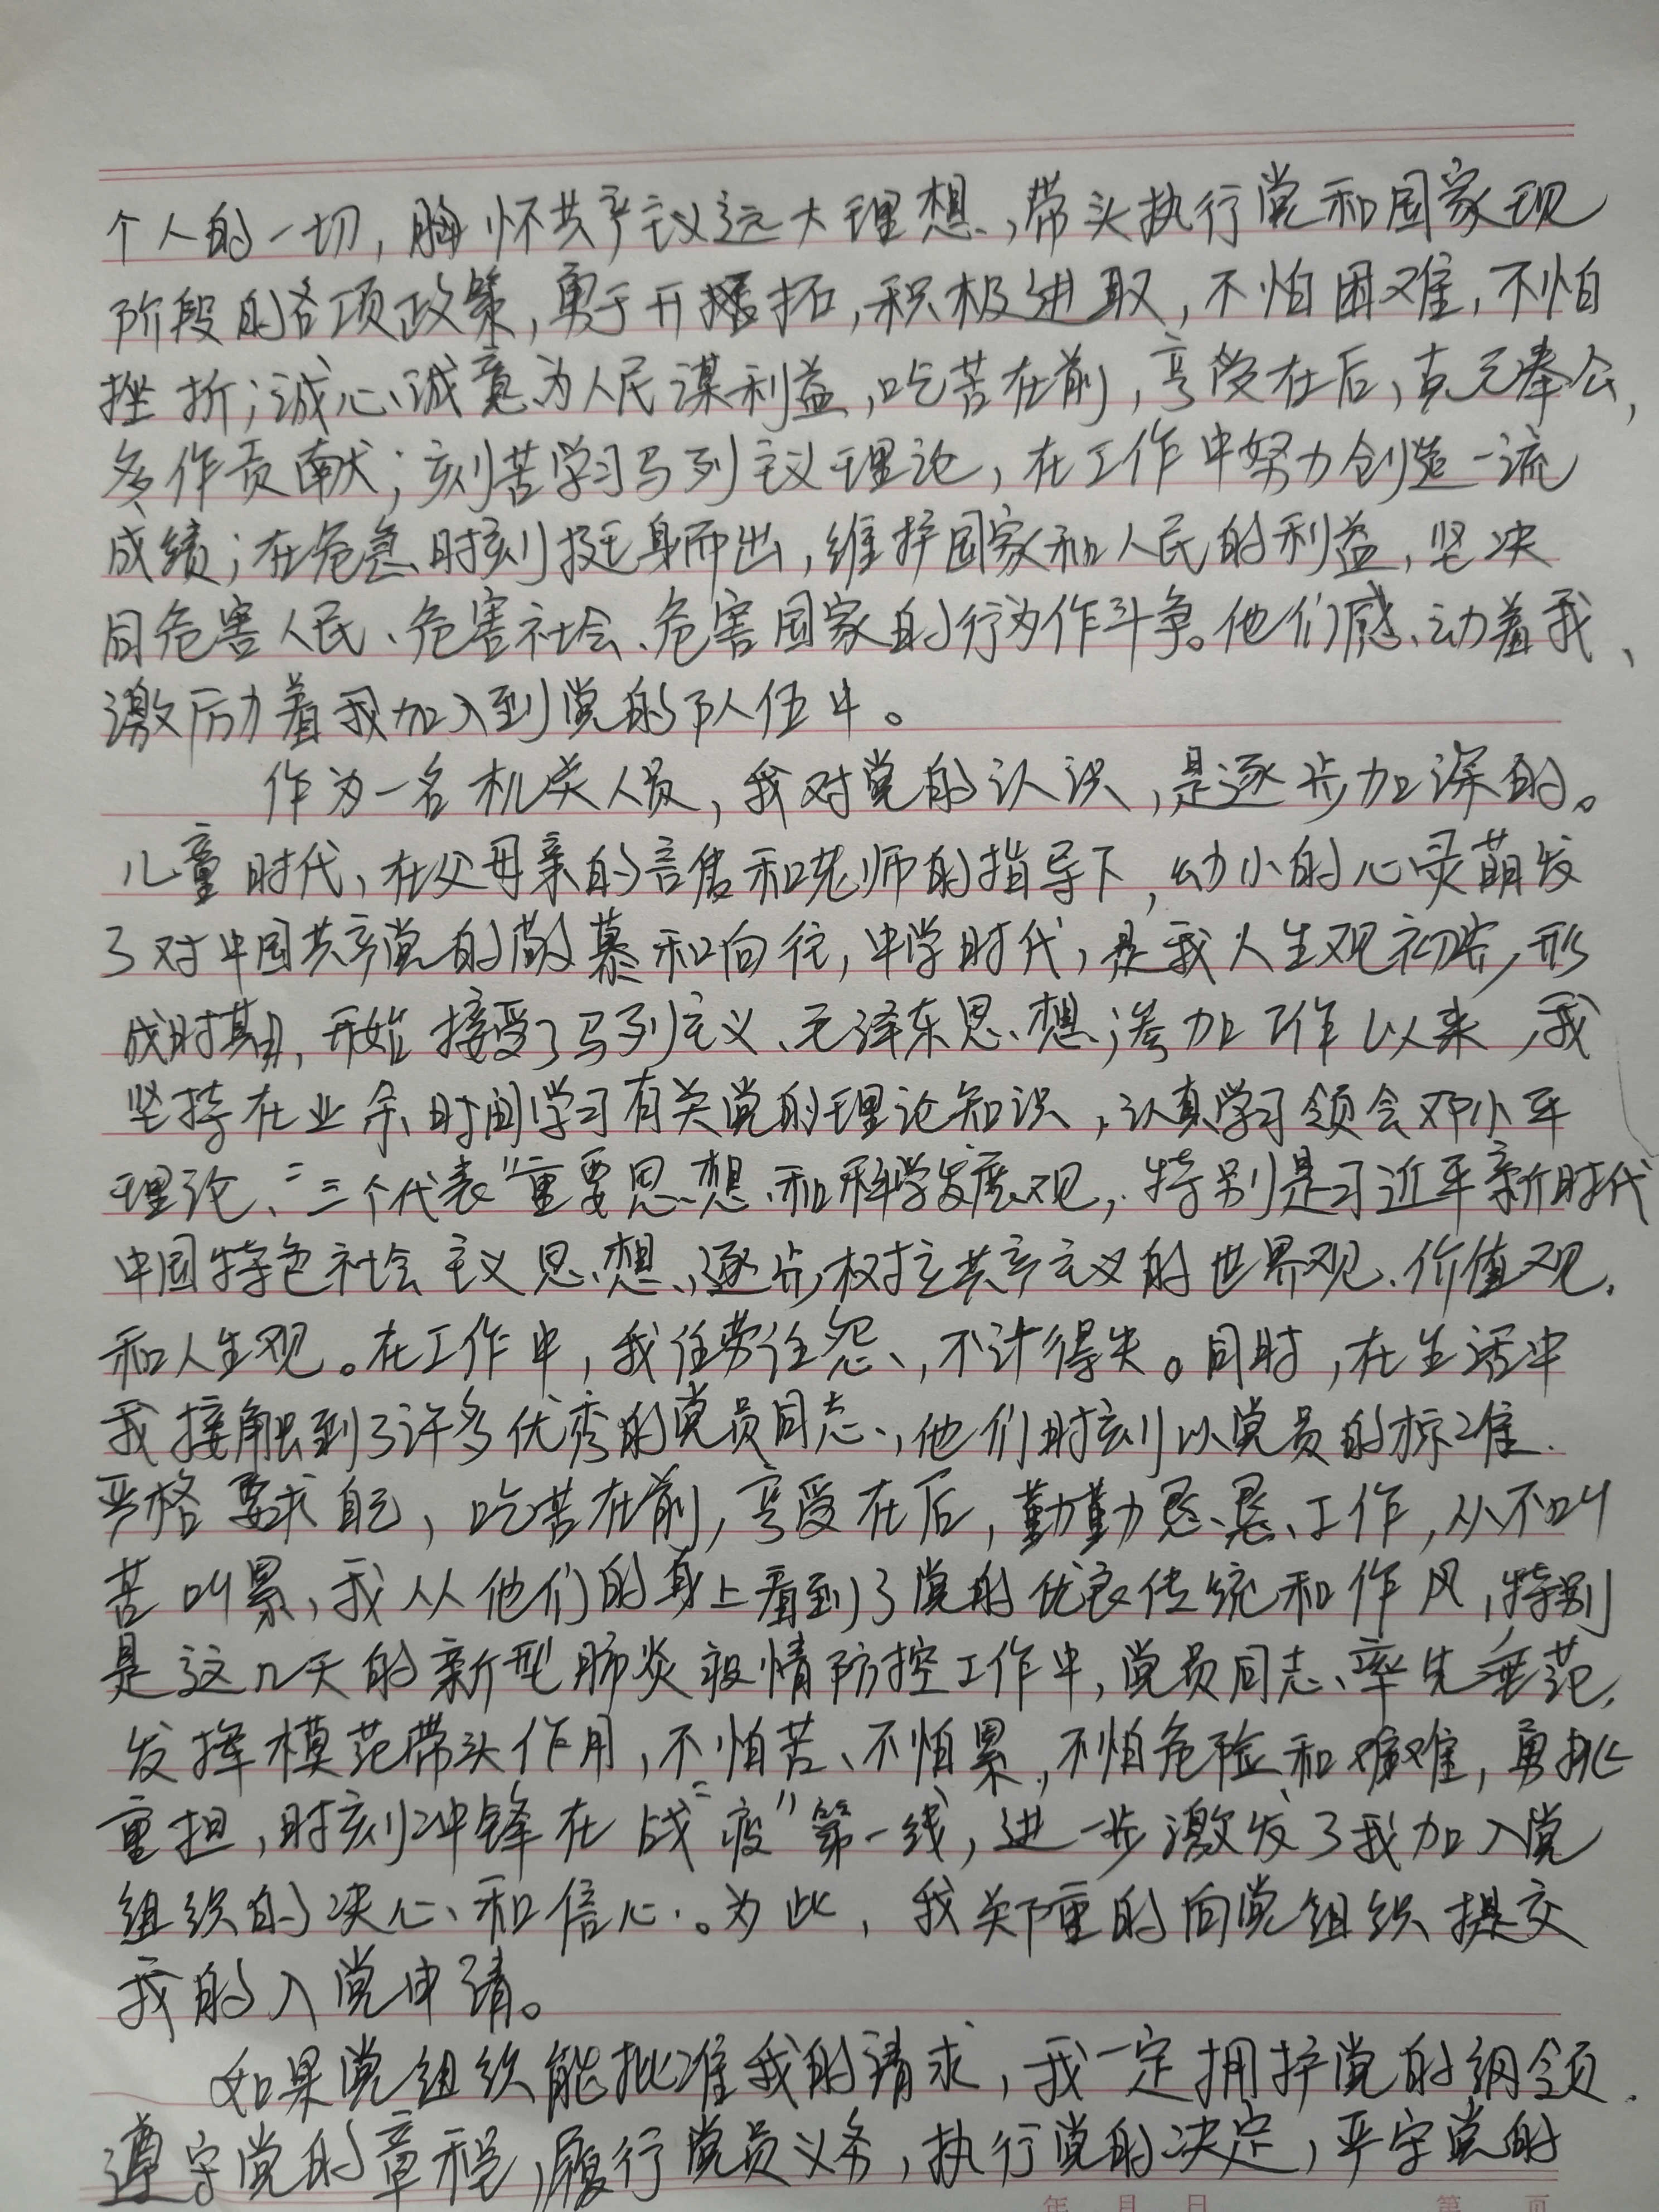 个人的一切，胸怀共产主义远大理想，带头执行党和国家现
阶段的各项政策，勇于开拓，积极进取，不怕困难，不怕
挫折；诚心诚意为人民谋利益，吃苦在前，享受在后，克己奉公，
多作贡献；刻苦学习马列主义理论，在工作中努力创造一流
成绩；在危急时刻挺身而出，维护国家和人民的利益，坚决
同危害人民、危害社会、危害国家的行为作斗争。他们感动着我、
激励着我加入到党的队伍中。
作为一名机关人员，我对党的认识，是逐步加深的。
儿童时代，在父母亲的言传和老师的指导下，幼小的心灵萌发
了对中国共产党的敬慕和向往，中学时代，是我人生观初步形
成时期，开始接受了马列主义、毛泽东思想；参加工作以来，我
坚持在业余时间学习有关党的理论知识，认真学习领会邓小平
理论、“三个代表”重要思想和科学发展观，特别是习近平新时代
中国特色社会主义思想，逐步树立共产主义的世界观、价值观、
和人生观。在工作中，我任劳任怨，不计得失。同时，在生活中
我接触到了许多优秀的党员同志，他们时刻以党员的标准
严格要求自己，吃苦在前，享受在后，勤勤恳恳工作，从不叫
苦叫累，我从他们的身上看到了党的优良传统和作风，特别
是这几天的新型肺炎疫情防控工作中，党员同志率先垂范，
发挥模范带头作用，不怕苦、不怕累，不怕危险和艰难，勇挑
重担，时刻冲锋在战“疫”第一线，进一步激发了我加入党
组织的决心和信心。为此，我郑重的向党组织提交
我的入党申请。
如果党组织能批准我的请求，我一定拥护党的纲领，
遵守党的章程，履行党员义务，执行党的决定，严守党的
年 月 日 第 页